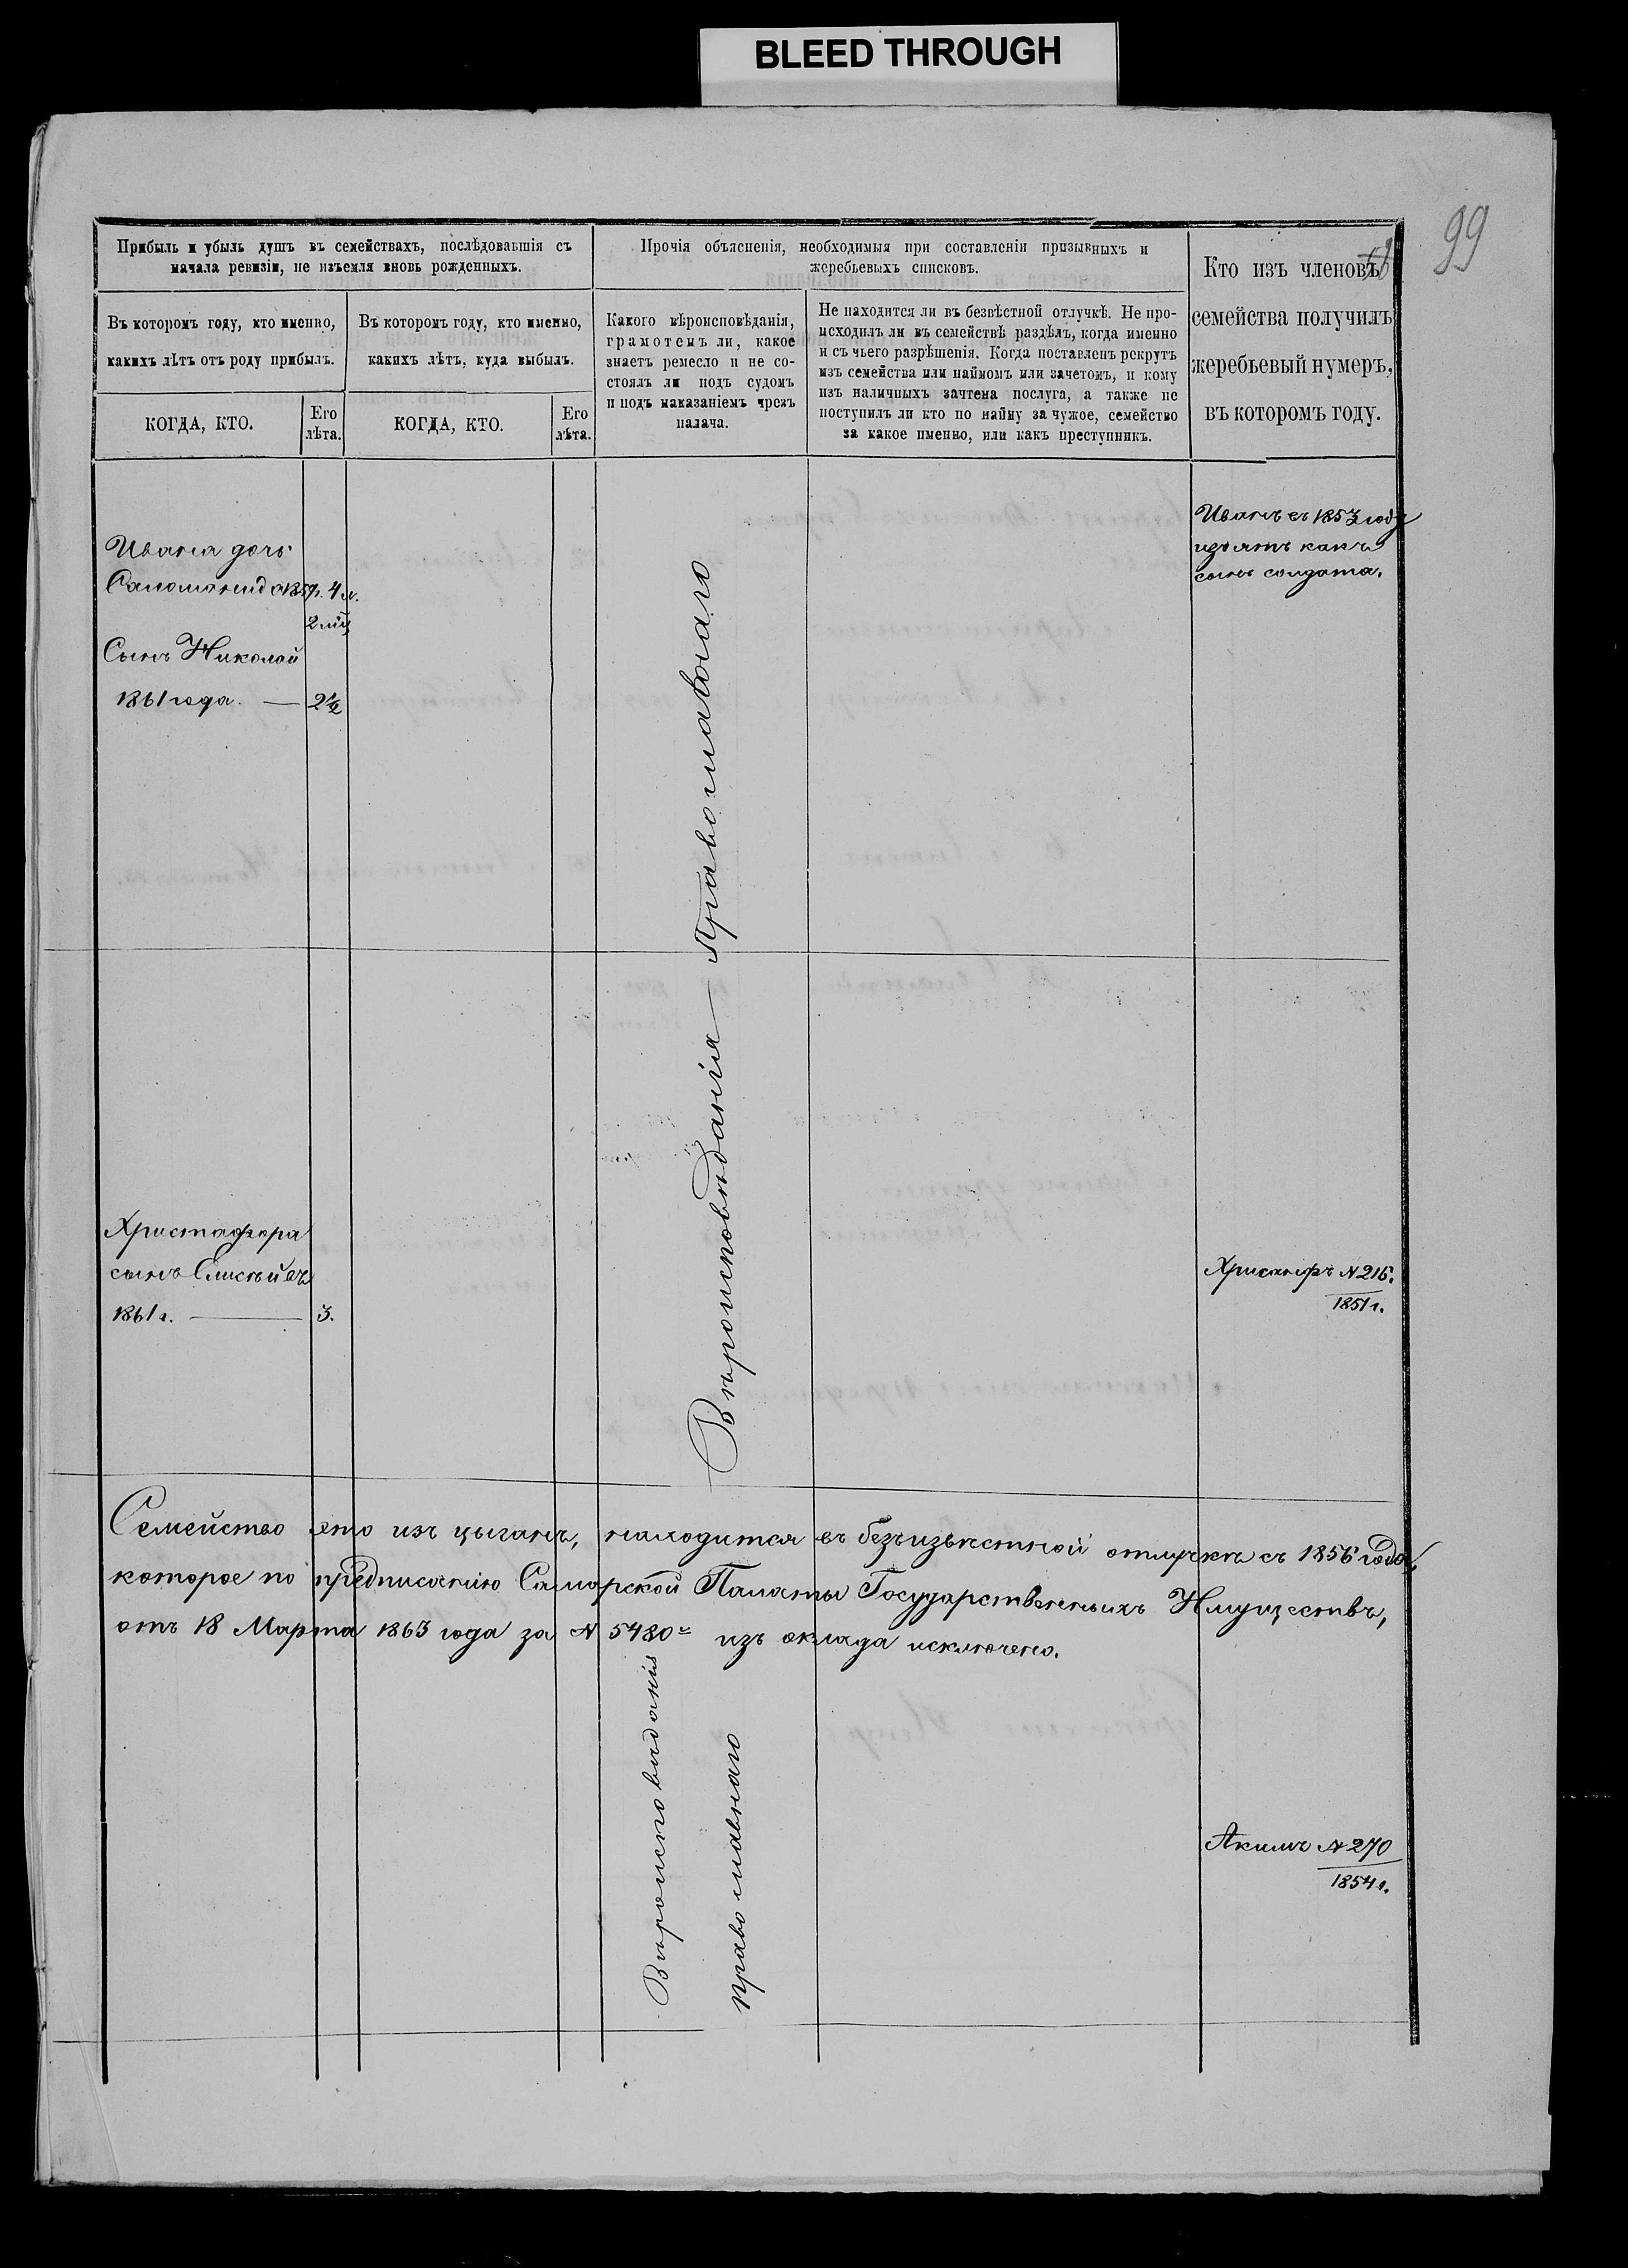 BLEED THROUGH
99
Прибыль и убыль душъ въ семействахъ, послѣдовавшія съ
начала ревизіи, не изъемля вновь рожденныхъ.
Въ которомъ году, кто именно,
какихъ лѣтъ отъ роду прибылъ.
КОГДА, КТО.
Его
лѣта.
Въ которомъ году, кто именно,
какихъ лѣтъ, куда выбылъ.
КОГДА, КТО.
Его
лѣта.
Прочія объясненія, необходимыя при составленіи призывныхъ и
жеребьевыхъ списковъ.
Какого вѣроисповѣданія,
грамотенъ ли, какое
знаетъ ремесло и не со-
стоялъ ли подъ судомъ
и подъ наказаніемъ чрезъ
палача.
Не находится ли въ безвѣстной отлучкѣ. Не про-
исходилъ ли въ семействѣ раздѣлъ, когда именно
и съ чьего разрѣшенія. Когда поставленъ рекрутъ
изъ семейства или наймомъ или зачетомъ, и кому
изъ наличныхъ зачтена послуга, а также не
поступилъ ли кто по найму за чужое, семейство
за какое именно, или какъ преступникъ.
Кто изъ членовъ
семейства получилъ
жеребьевый нумеръ,
въ которомъ году.
Ивана дочь
Саломанида 1857г. 4 м.
Сынъ Николай
1861 года. — 2½
Иванъ въ 1853 году
изъятъ какъ
сынъ солдата.
Вѣроисповѣданія — Православнаго
Христафора
сынъ Елисѣй въ
1861 г. — 3.
Хрисанфъ N 216.
1851 г.
Семейство это изъ цыганъ, находится въ безъизвѣстной отлучкѣ съ 1856 года,
которое по предписанію Самарской Палаты Государственныхъ Имуществъ,
отъ 18 Марта 1863 года за N 5480 изъ оклада исключено.
Вѣроисповѣданія
православнаго
Акимъ N 270
1854 г.